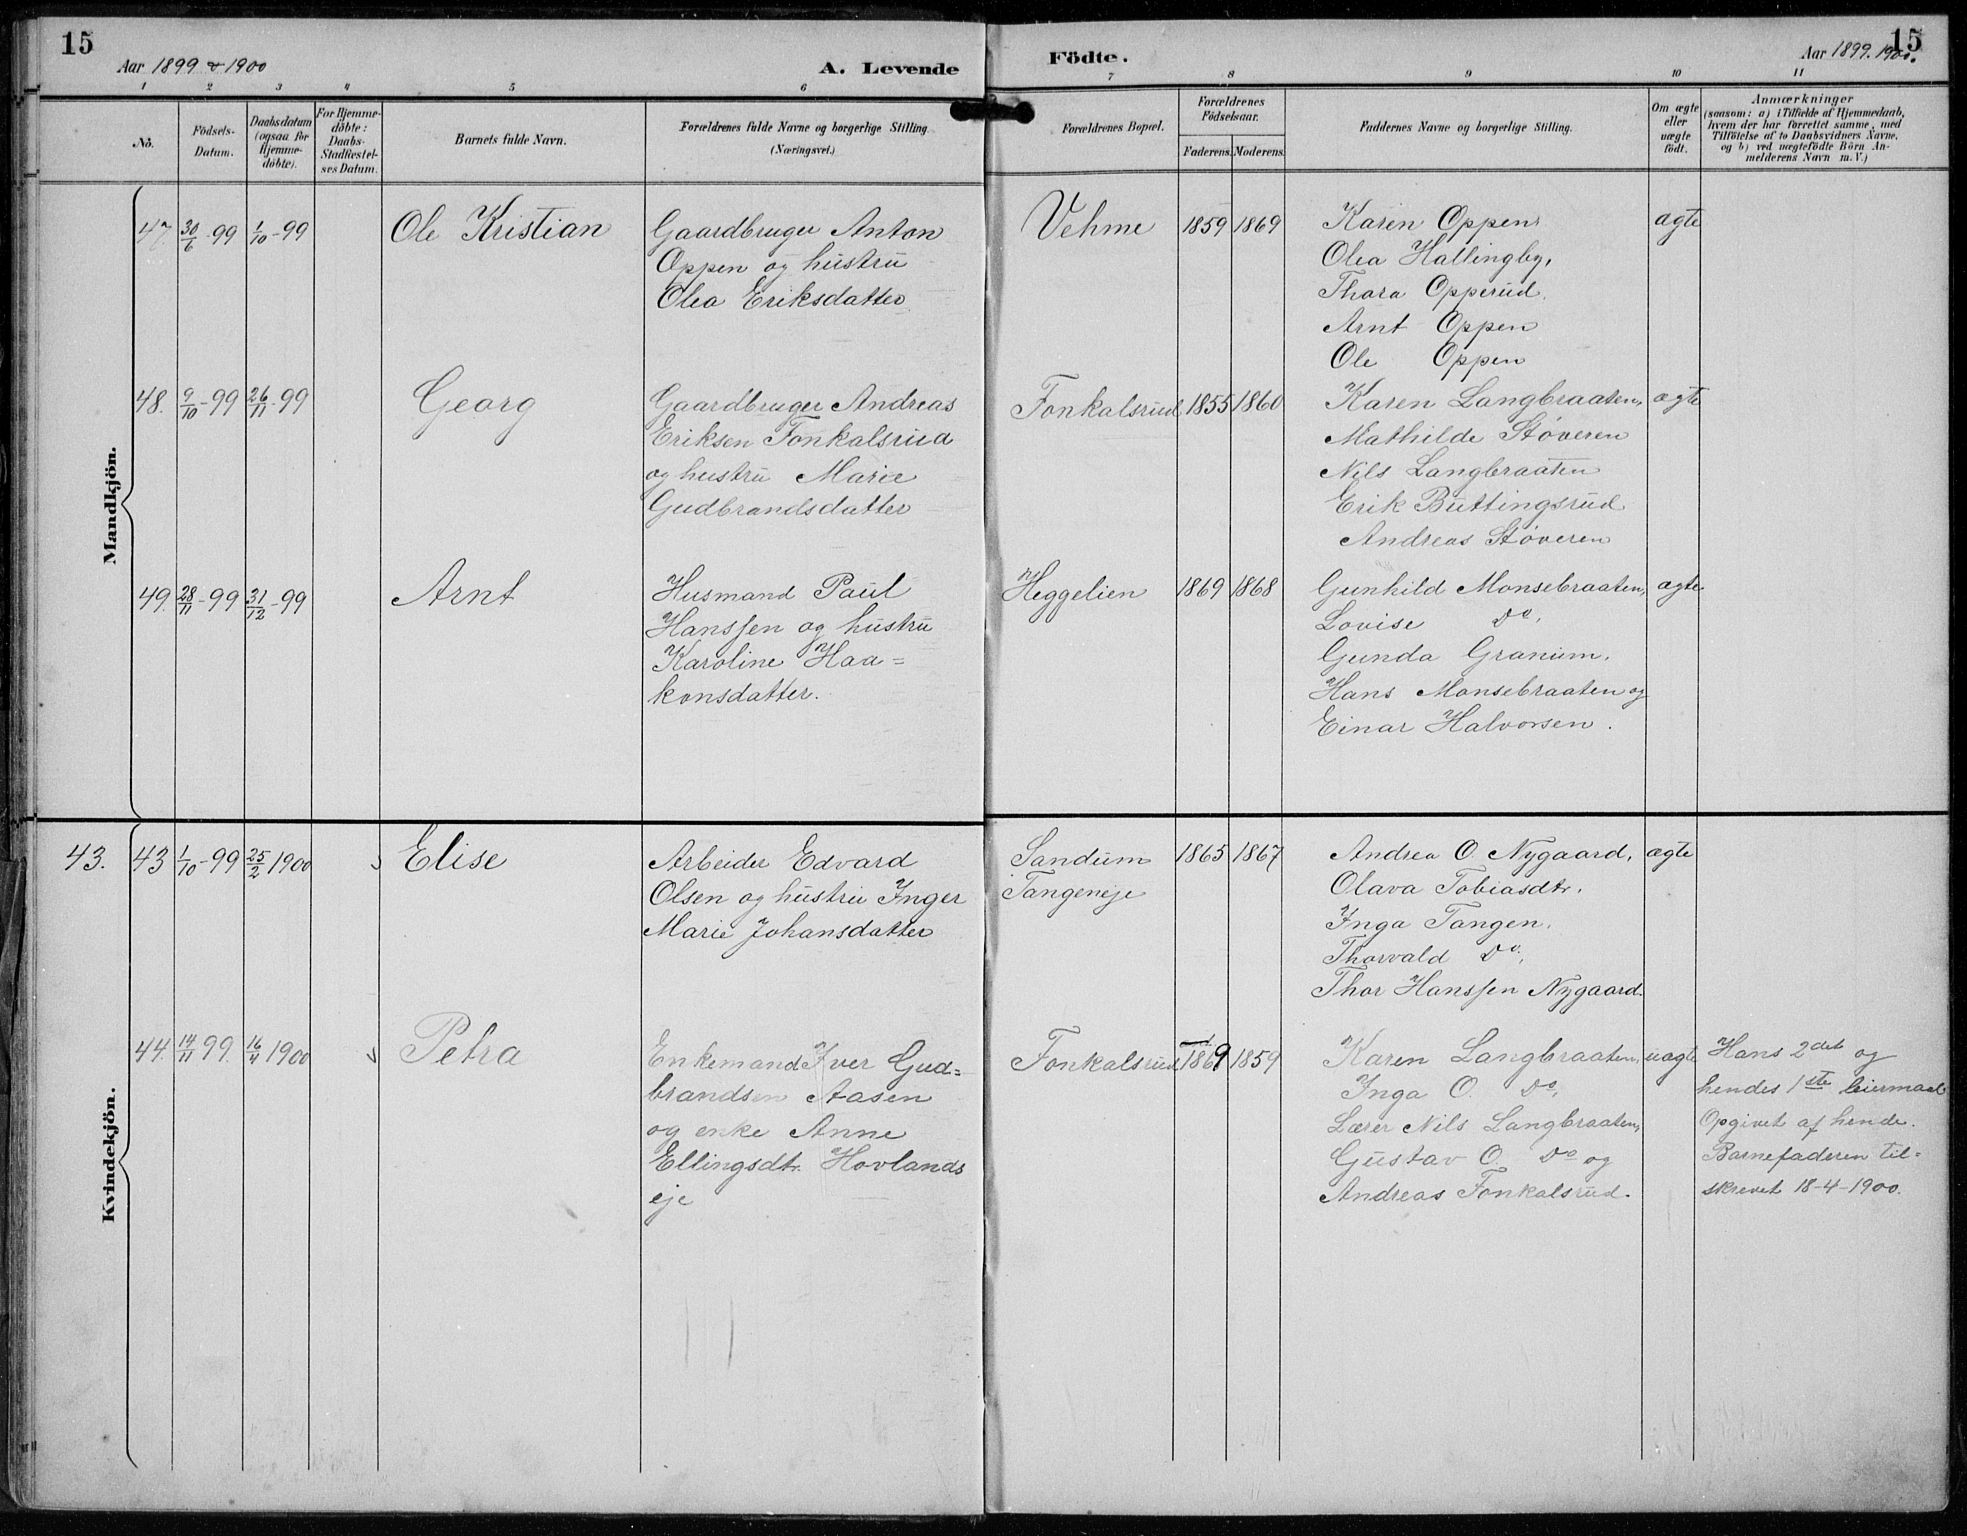 15
Aar 1899 & 1900
A. Levende
Födte.
Aar 1899. 1900.
15
1 2 3 4 5 6 7 8 9 10 11
No.
Födsels-Datum.
Daabsdatum (ogsaa for Hjemmedöbte).
For Hjemmedöbte: Daabs-Stadfæstelses Datum.
Barnets fulde Navn.
Forældrenes fulde Navne og borgerlige Stilling
(Næringsvei.)
Forældrenes Bopæl.
Forældrenes Födselsaar.
Faderens. Moderens.
Faddernes Navne og borgerlige Stilling.
Om ægte eller uægte födt.
Anmærkninger
(saasom: a) i Tilfælde af Hjemmedaab,
hvem der har forrettet samme, med
Tilföielse af to Daabsvidners Navne,
og b) ved uægtefödte Börn An-
melderens Navn m. V.)
Mandkjön.
47. 30/6-99 1/10-99 Ole Kristian Gaardbruger Anton Vehme 1859 1869 Karen Oppen, ægte
Oppen og hustru Olea Hallingby,
Olea Eriksdatter Thora Opperud.
Arnt Oppen
Ole Oppen
48. 9/10-99 26/11-99 Georg Gaardbruger Andreas Fonkalsrud 1855 1860 Karen Langbraaten, ægte
Eriksen Fonkalsrud Mathilde Støveren
og hustru Marie Nils Langbraaten
Gudbrandsdatter Erik Buttingsrud
Andreas Støveren
49. 28/11-99 31/12-99 Arnt Husmand Paul Heggelien 1869 1868 Gunhild Monsebraaten, ægte
Hanssen og hustru Lovise Do,
Karoline Haa= Gunda Granum.
konsdatter. Hans Monsebraaten og
Einar Halvorsen.
Kvindekjön.
43. 43 1/10-99 25/2 1900 Elise Arbeider Edvard Sandum 1865 1867 Andrea O. Nygaard, ægte
Olsen og hustru Inger Tangeneje Olava Tobiasdtr.
Marie Johansdatter Inga Tangen.
Thorvald Do,
Thor Hanssen Nygaard.
44. 14/11 99. 16/4 1900 Petra Enkemand Iver Gud= Fonkalsrud 1869 1859 Karen Langbraaten, uægte Hans 2det og
brandsen Aasen Inga O. Do, hendes 1ste leiermaal
og enke Anne Lærer Nils Langbraaten, Opgivet af hende.
Ellingsdtr. Hovlands Gustav O. Do og Barnefaderen til-
eje Andreas Fonkalsrud. skrevet 18-4-1900.